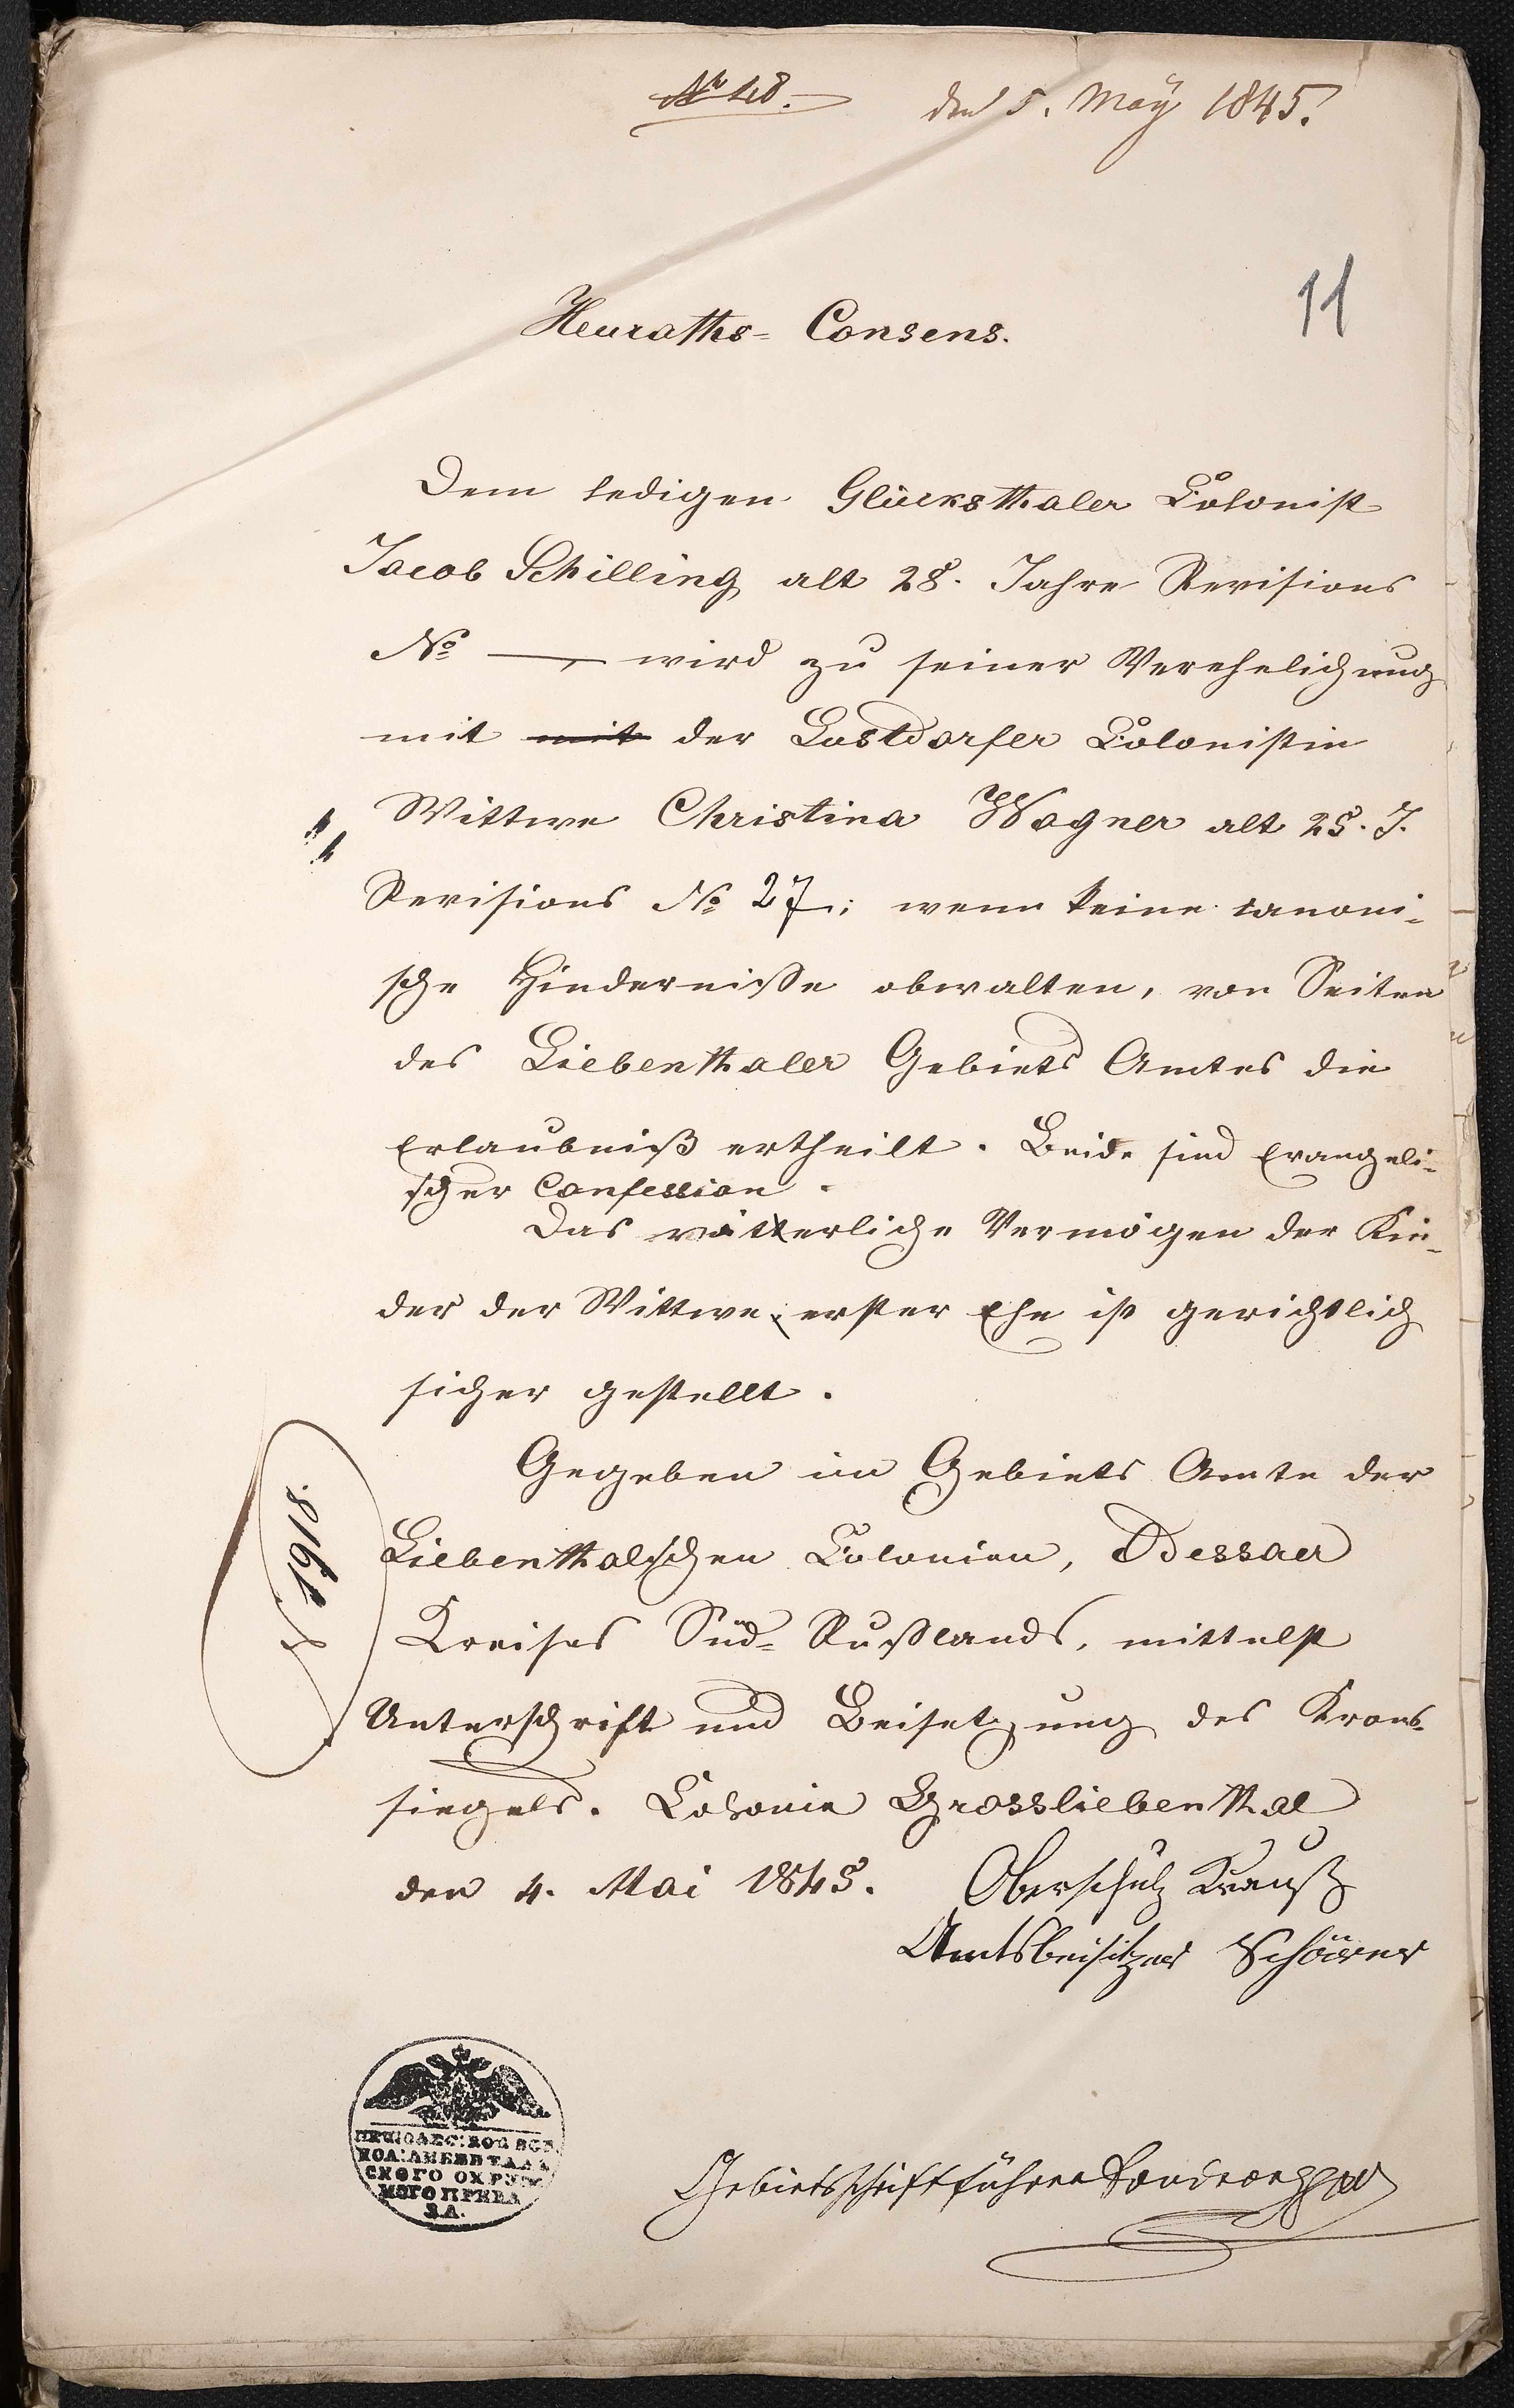 № 48. den 5. May 1845.
11
Heuraths- Consens.
Dem ledigen Glücksthaler Colonist
Jacob Schilling alt 28. Jahre Revisions
№ —, wird zu seiner Verehelichung
mit mit der Lustdorfer Colonistin
Wittwe Christina Wagner alt 25. J.
Revisions № 27; wenn keine canoni-
sche Hinderniße obwalten, von Seiten
des Liebenthaler Gebiets Amtes die
Erlaubniß ertheilt. Beide sind Evangeli-
scher Confession.
Das vätterliche Vermögen der Kin-
der der Wittwe, erster Ehe ist gerichtlich
sicher gestellt.
Gegeben im Gebiets Amte der
Liebenthalschen Colonien, Odessaer
Kreises Süd-Rußlands, mittelst
Unterschrift und Beisetzung des Krons-
siegels. Colonie Grossliebenthal
den 4. Mai 1845. Oberschulz Krauß
Amtsbeisitzer Schörer
1918.
Gebietsschriftführer
СКОГО ОКРУЖ
НОГО ПРИКА
ЗА.